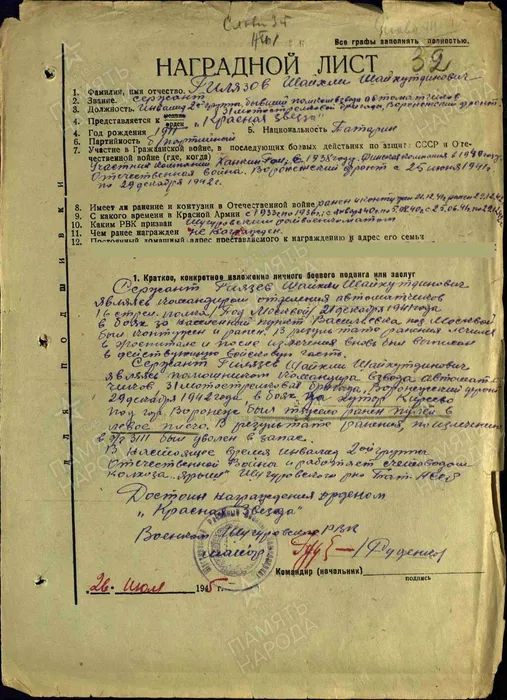 Слава 3й
Все графы заполнять полностью.
32
НАГРАДНОЙ ЛИСТ
1. Фамилия, имя отчество. Гилязов Шайхли Шайхутдинович
2. Звание. сержант
3. Должность. Инвалид 2й группы, бывший помкомвзвода автоматчиков
31 мотострелковой бригады, Воронежский фронт
4. Представляется к "Красная Звезда"
4. Год рождения 1911 5. Национальность Татарин
6. Партийность б/партийный
7. Участие в Гражданской войне, в последующих боевых действиях по защите СССР и Оте-
чественной войне (где, когда)
Участник компании Ханкин Гол, в 1938 году. Финская компания в 1940 году.
Отечественная война. Воронежский фронт с 25 июня 1941г.
по 29 декабря 1942г.
8. Имеет ли ранение и контузия в Отечественной войне ранен и контужен 21.12.41, ранен
9. С какого времени в Красной Армии с 1933 по 1936г.
10. Каким РВК призван Шугуровским райвоенкоматом
11. Чем ранее награжден не награжден.
12. Постоянный домашний адрес преставлемого к награждению и адрес его семьи
1. Краткое, конкретное изложение личного боевого подвига или заслуг
Сержант Гилязев Шайхли Шайхутдинович
являясь командиром отделения автоматчиков
16 стрел. полка, под Москвой 21 декабря 1941 года
в боях за населенный пункт Васильевка под Москвой
был контужен и ранен, в результате ранения лечился
в госпитале и после излечения вновь был выписан
в действующую войсковую часть.
Сержант Гилязев Шайхли Шайхутдинович
являясь помощником командира взвода автомат-
чиков 31 мотострелковой бригады, Воронежский фронт
29 декабря 1942 года в боях за хутор
под гор. Воронеж был тяжело ранен пулей в
левое плечо. В результате ранения, по излечении
был уволен в запас.
В настоящее время инвалид 2ой группы
Отечественной Войны и работает счетоводом
колхоза "Ярыш" Шугуровского р-на Тат. АССР
Достоин награждения орденом
"Красная Звезда"
Военком Шугуровского РВК
майор /Руденко/
Командир (начальник)
подпись
26 июля 1945 г.
Для подшивки
ПАМЯТЬ НАРОДА